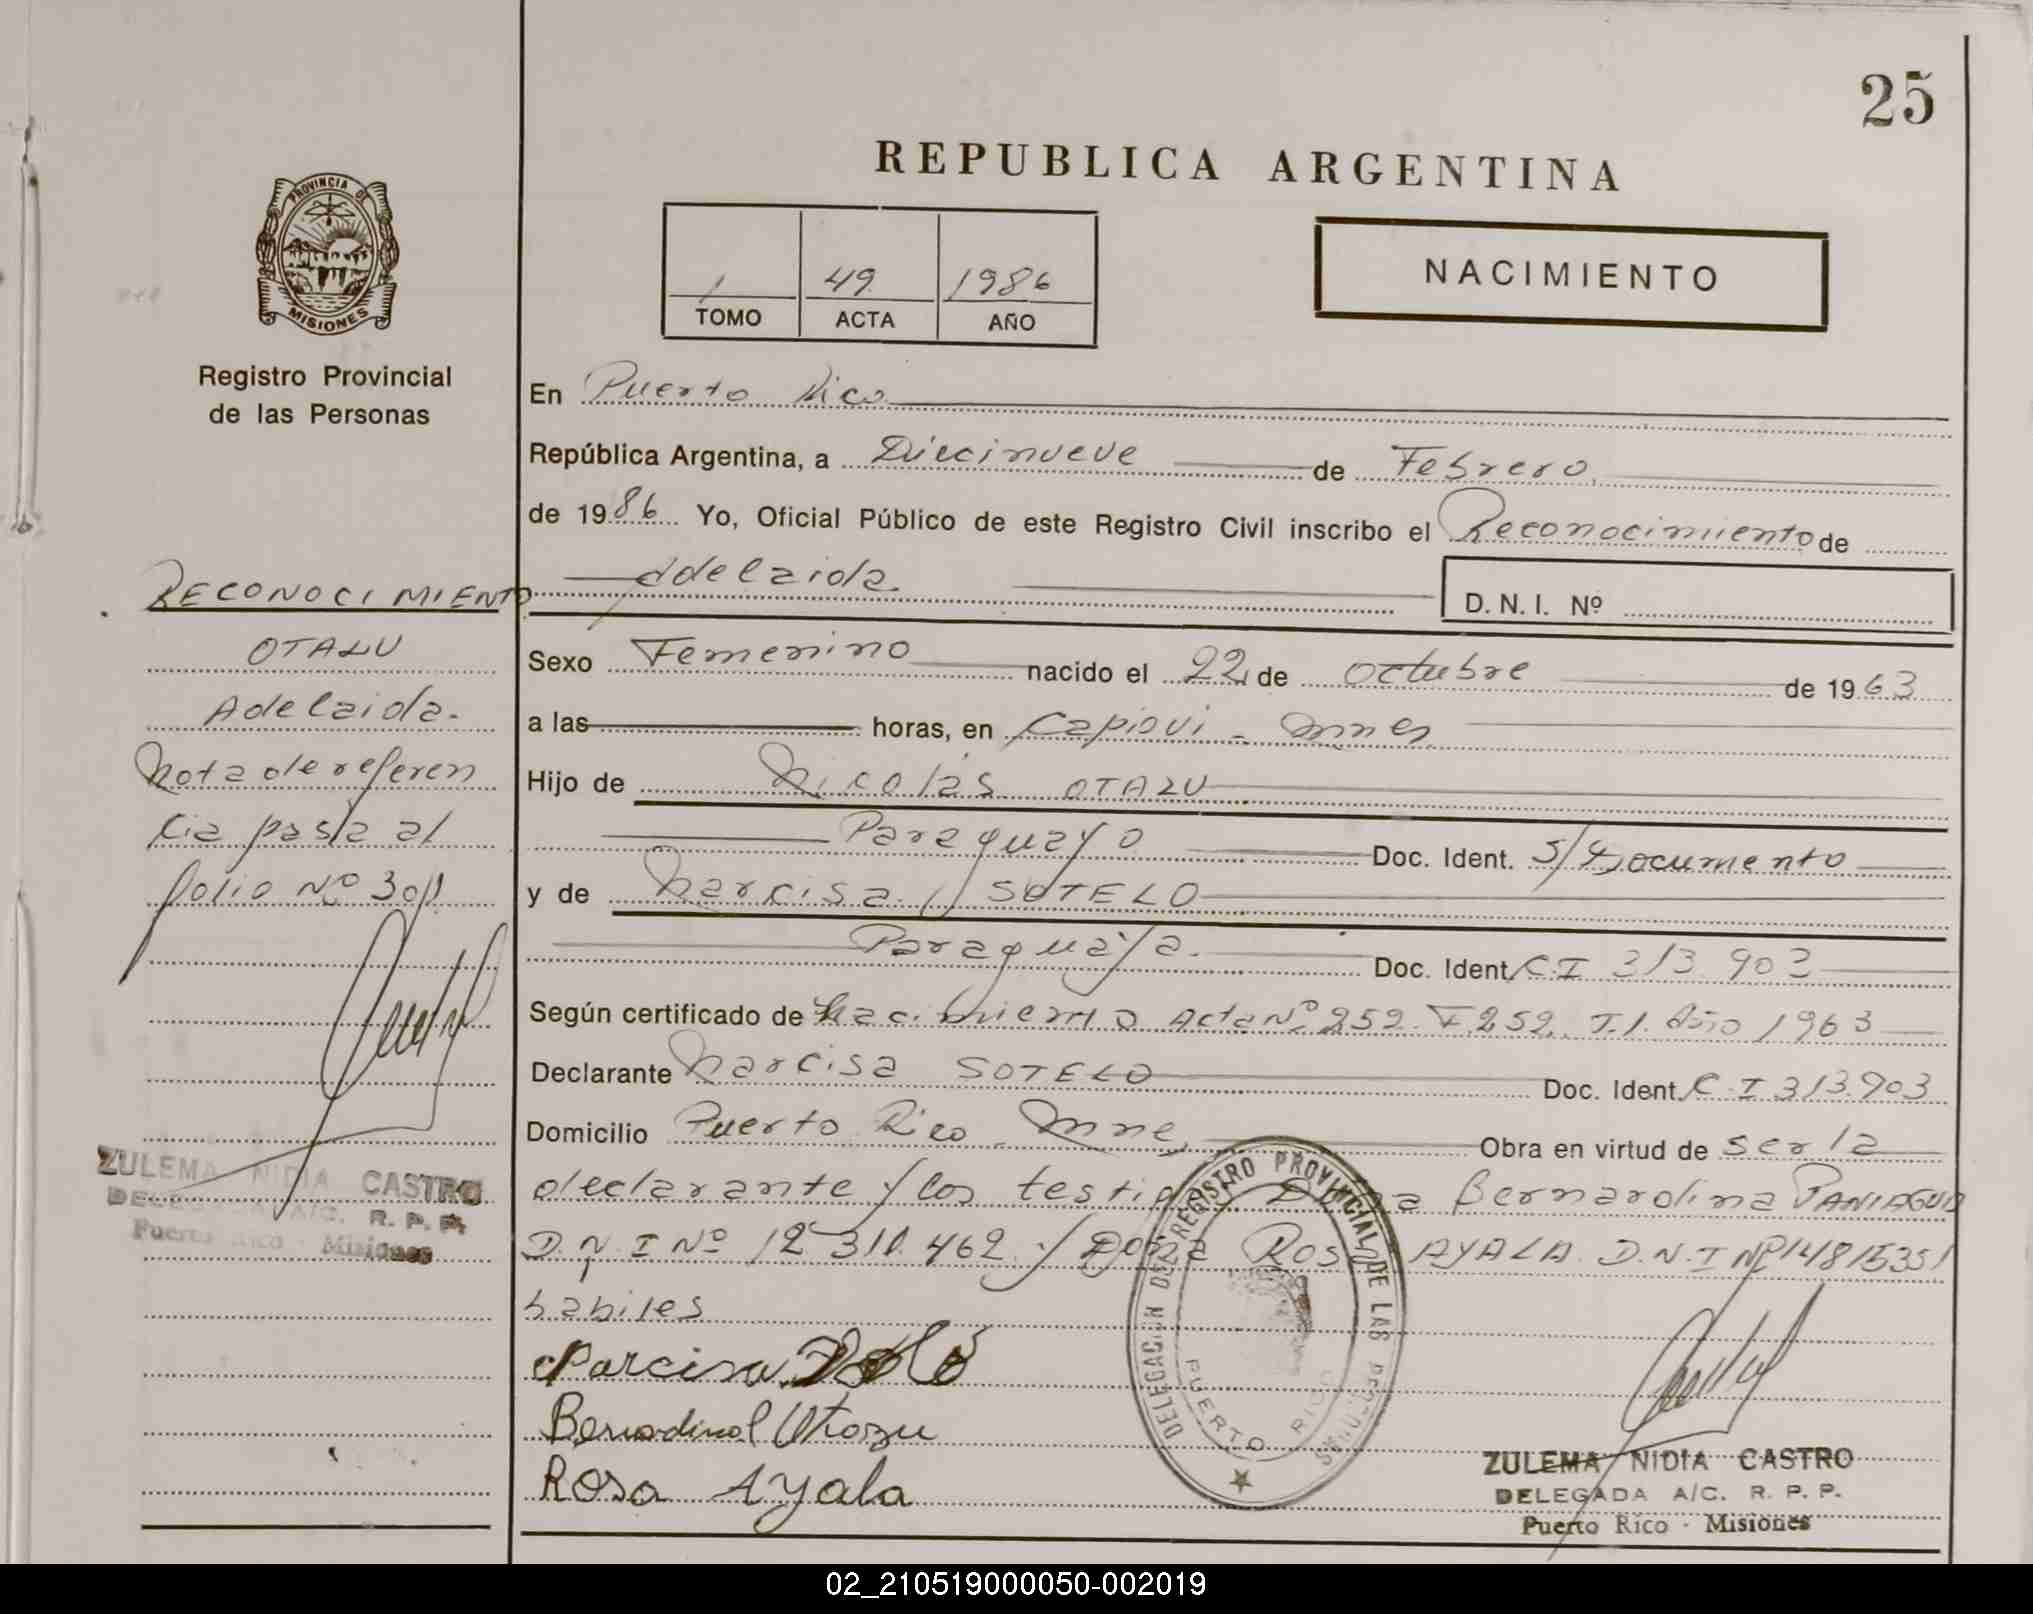 25
REPUBLICA ARGENTINA
PROVINCIA DE
MISIONES
Registro Provincial
de las Personas
1 49 1986
TOMO ACTA AÑO
NACIMIENTO
En Puerto Rico
República Argentina, a Diecinueve de Febrero
de 1986 Yo, Oficial Público de este Registro Civil inscribo el Reconocimiento de
Adelaida
D. N. I. Nº
RECONOCIMIENTO
OTAZU
Adelaida.
Nota de referen
cia pasa al
folio Nº 301
Sexo Femenino nacido el 22 de octubre de 1963
a las horas, en Capiovi - Mnes
Hijo de Nicolás OTAZU
Paraguayo Doc. Ident. S/Documento
y de Narcisa SOTELO
Paraguaya. Doc. Ident. C.I 313.903
Según certificado de Nacimiento Acta Nº 252. F 252. T.1. Año 1963
Declarante Narcisa SOTELO Doc. Ident. C.I 313.903
Domicilio Puerto Rico Mnes Obra en virtud de ser la
declarante y los testigos Doña Bernardina PANIAGUA
D.N.I Nº 12.310.462 y Doña Rosa AYALA D.N.I Nº 14815351
habiles
Narcisa
Rosa Ayala
ZULEMA NIDIA CASTRO
DELEGADA A/C. R. P. P.
Puerto Rico - Misiones
DELEGACION DEL REGISTRO PROVINCIAL DE LAS PERSONAS
PUERTO RICO
ZULEMA NIDIA CASTRO
DELEGADA A/C. R. P. P.
Puerto Rico - Misiones
02_210519000050-002019